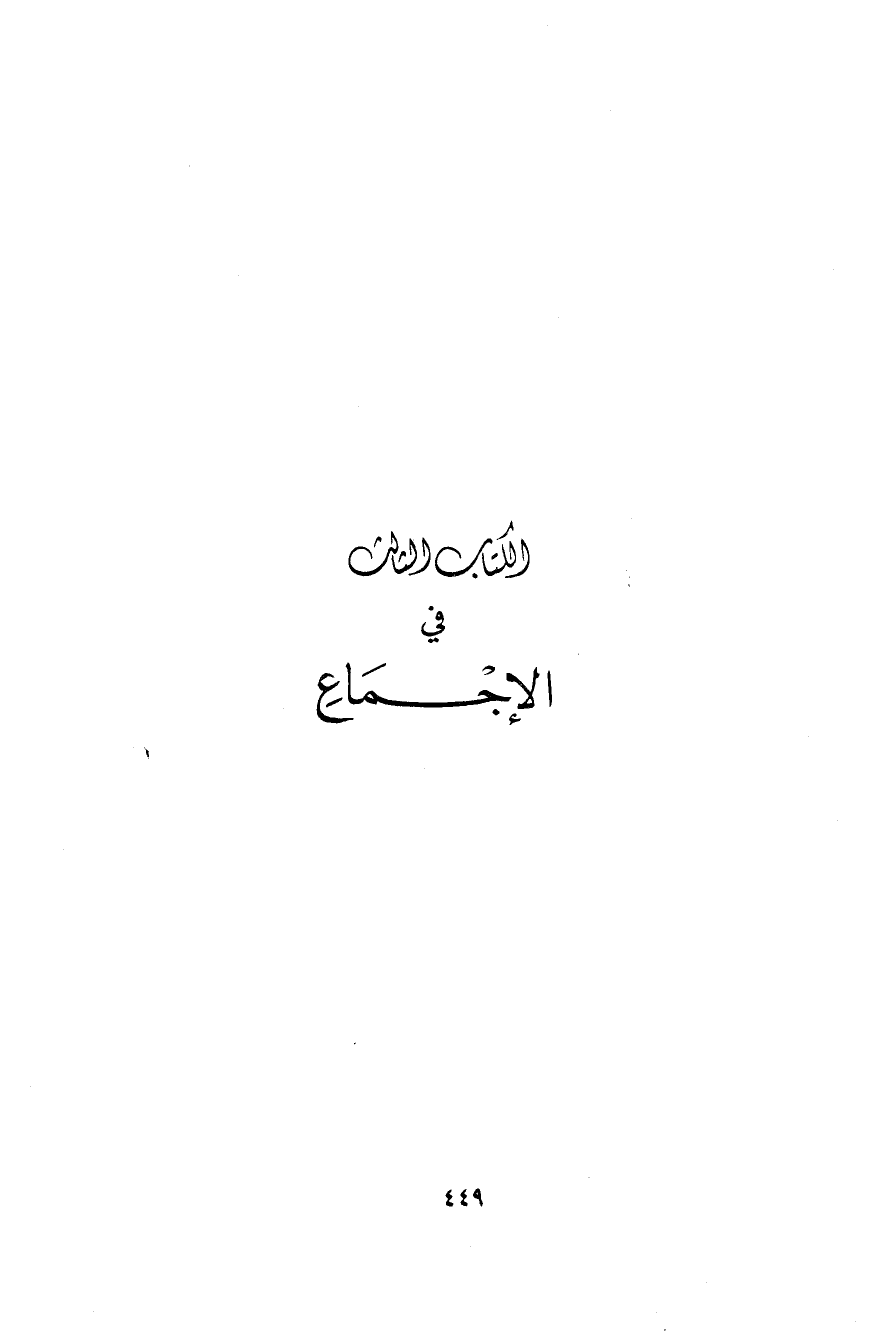 الكتاب الثالث
في
الإجْمَاعِ
٤٤٩